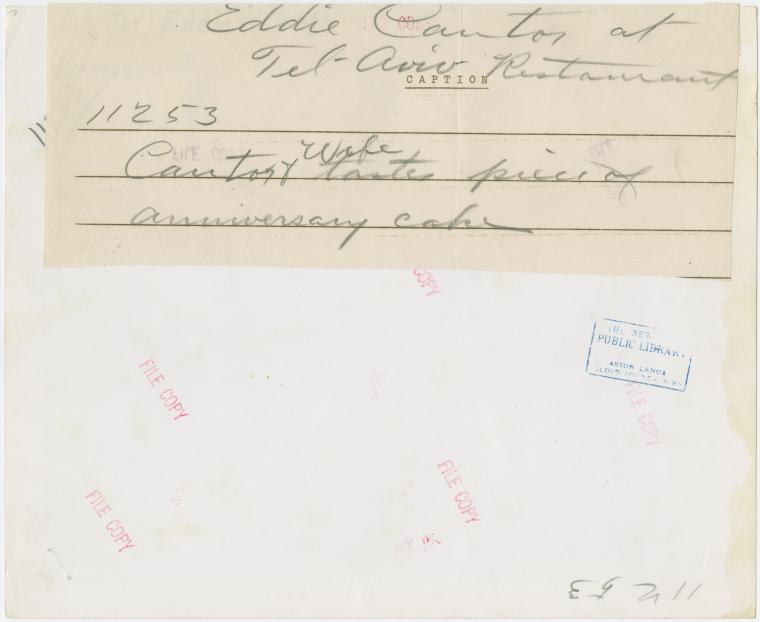 Eddie Cantor at
Tel-Aviv Restaurant
CAPTION
11253
Wife
Cantor & tastes piece of
anniversary cake
FILE COPY
COPY
THE NEW
PUBLIC LIBRARY
ASTOR LENOX
TILDEN FOUNDATIONS
FILE COPY
FILE COPY
FILE COPY
FILE COPY
11253